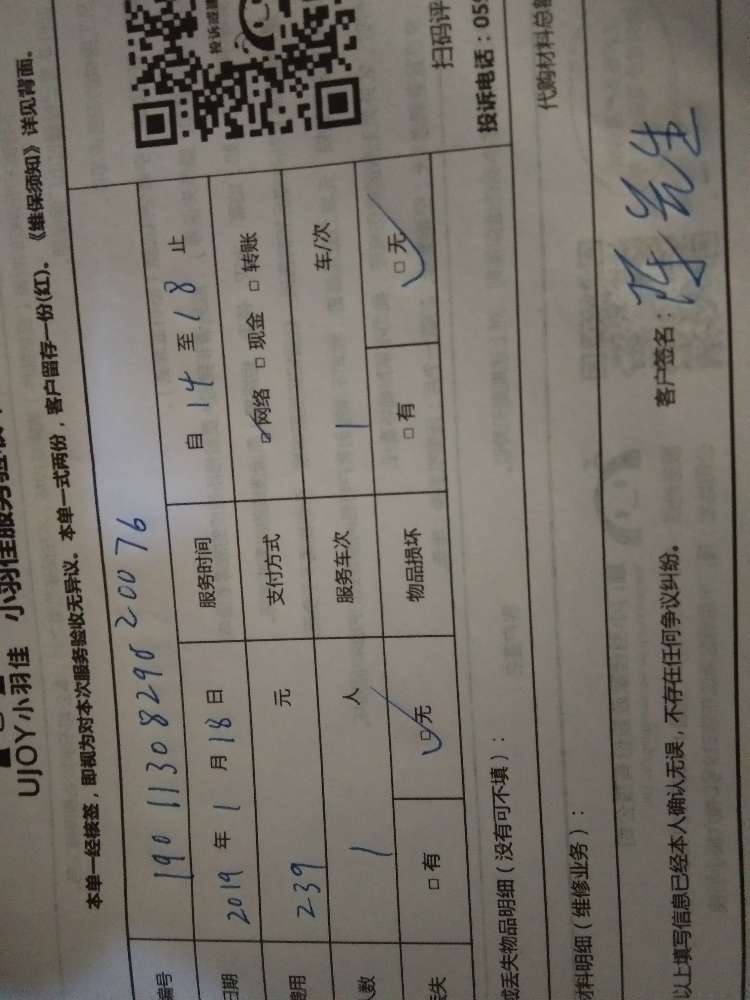 UJOY小羽佳 小羽佳服务验收
本单一经核签，即视为对本次服务验收无异议。本单一式两份，客户留存一份(红)。《维保须知》详见背面。
编号 190 11308290 20076
日期 2019 年 1 月 18 日 服务时间 自 14 至 18 止
费用 239 元 支付方式 ☑网络 □现金 □转账
人数 1 人 服务车次 1 车/次
丢失 □有 ☑无 物品损坏 □有 ☑无
投诉或建
扫码评
投诉电话：059
或丢失物品明细（没有可不填）：
材料明细（维修业务）：
代购材料总额
以上填写信息已经本人确认无误，不存在任何争议纠纷。 客户签名：陈先生